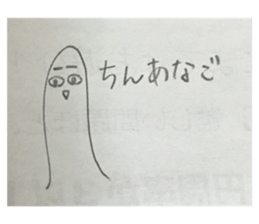 ちんあなご